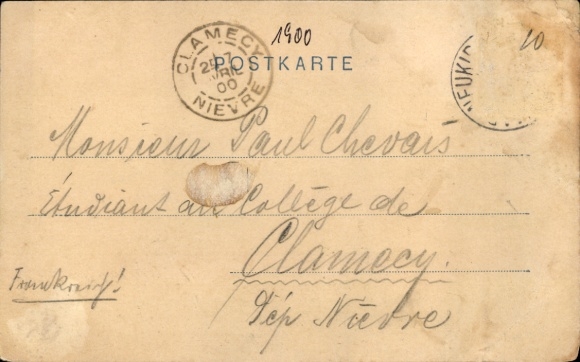 1900
10
CLAMECY
AVRIL
00
NIEVRE
POSTKARTE
Monsieur Paul Chevais
Étudiant au Collège de
Clamecy.
Dép Nièvre
Frankreich!